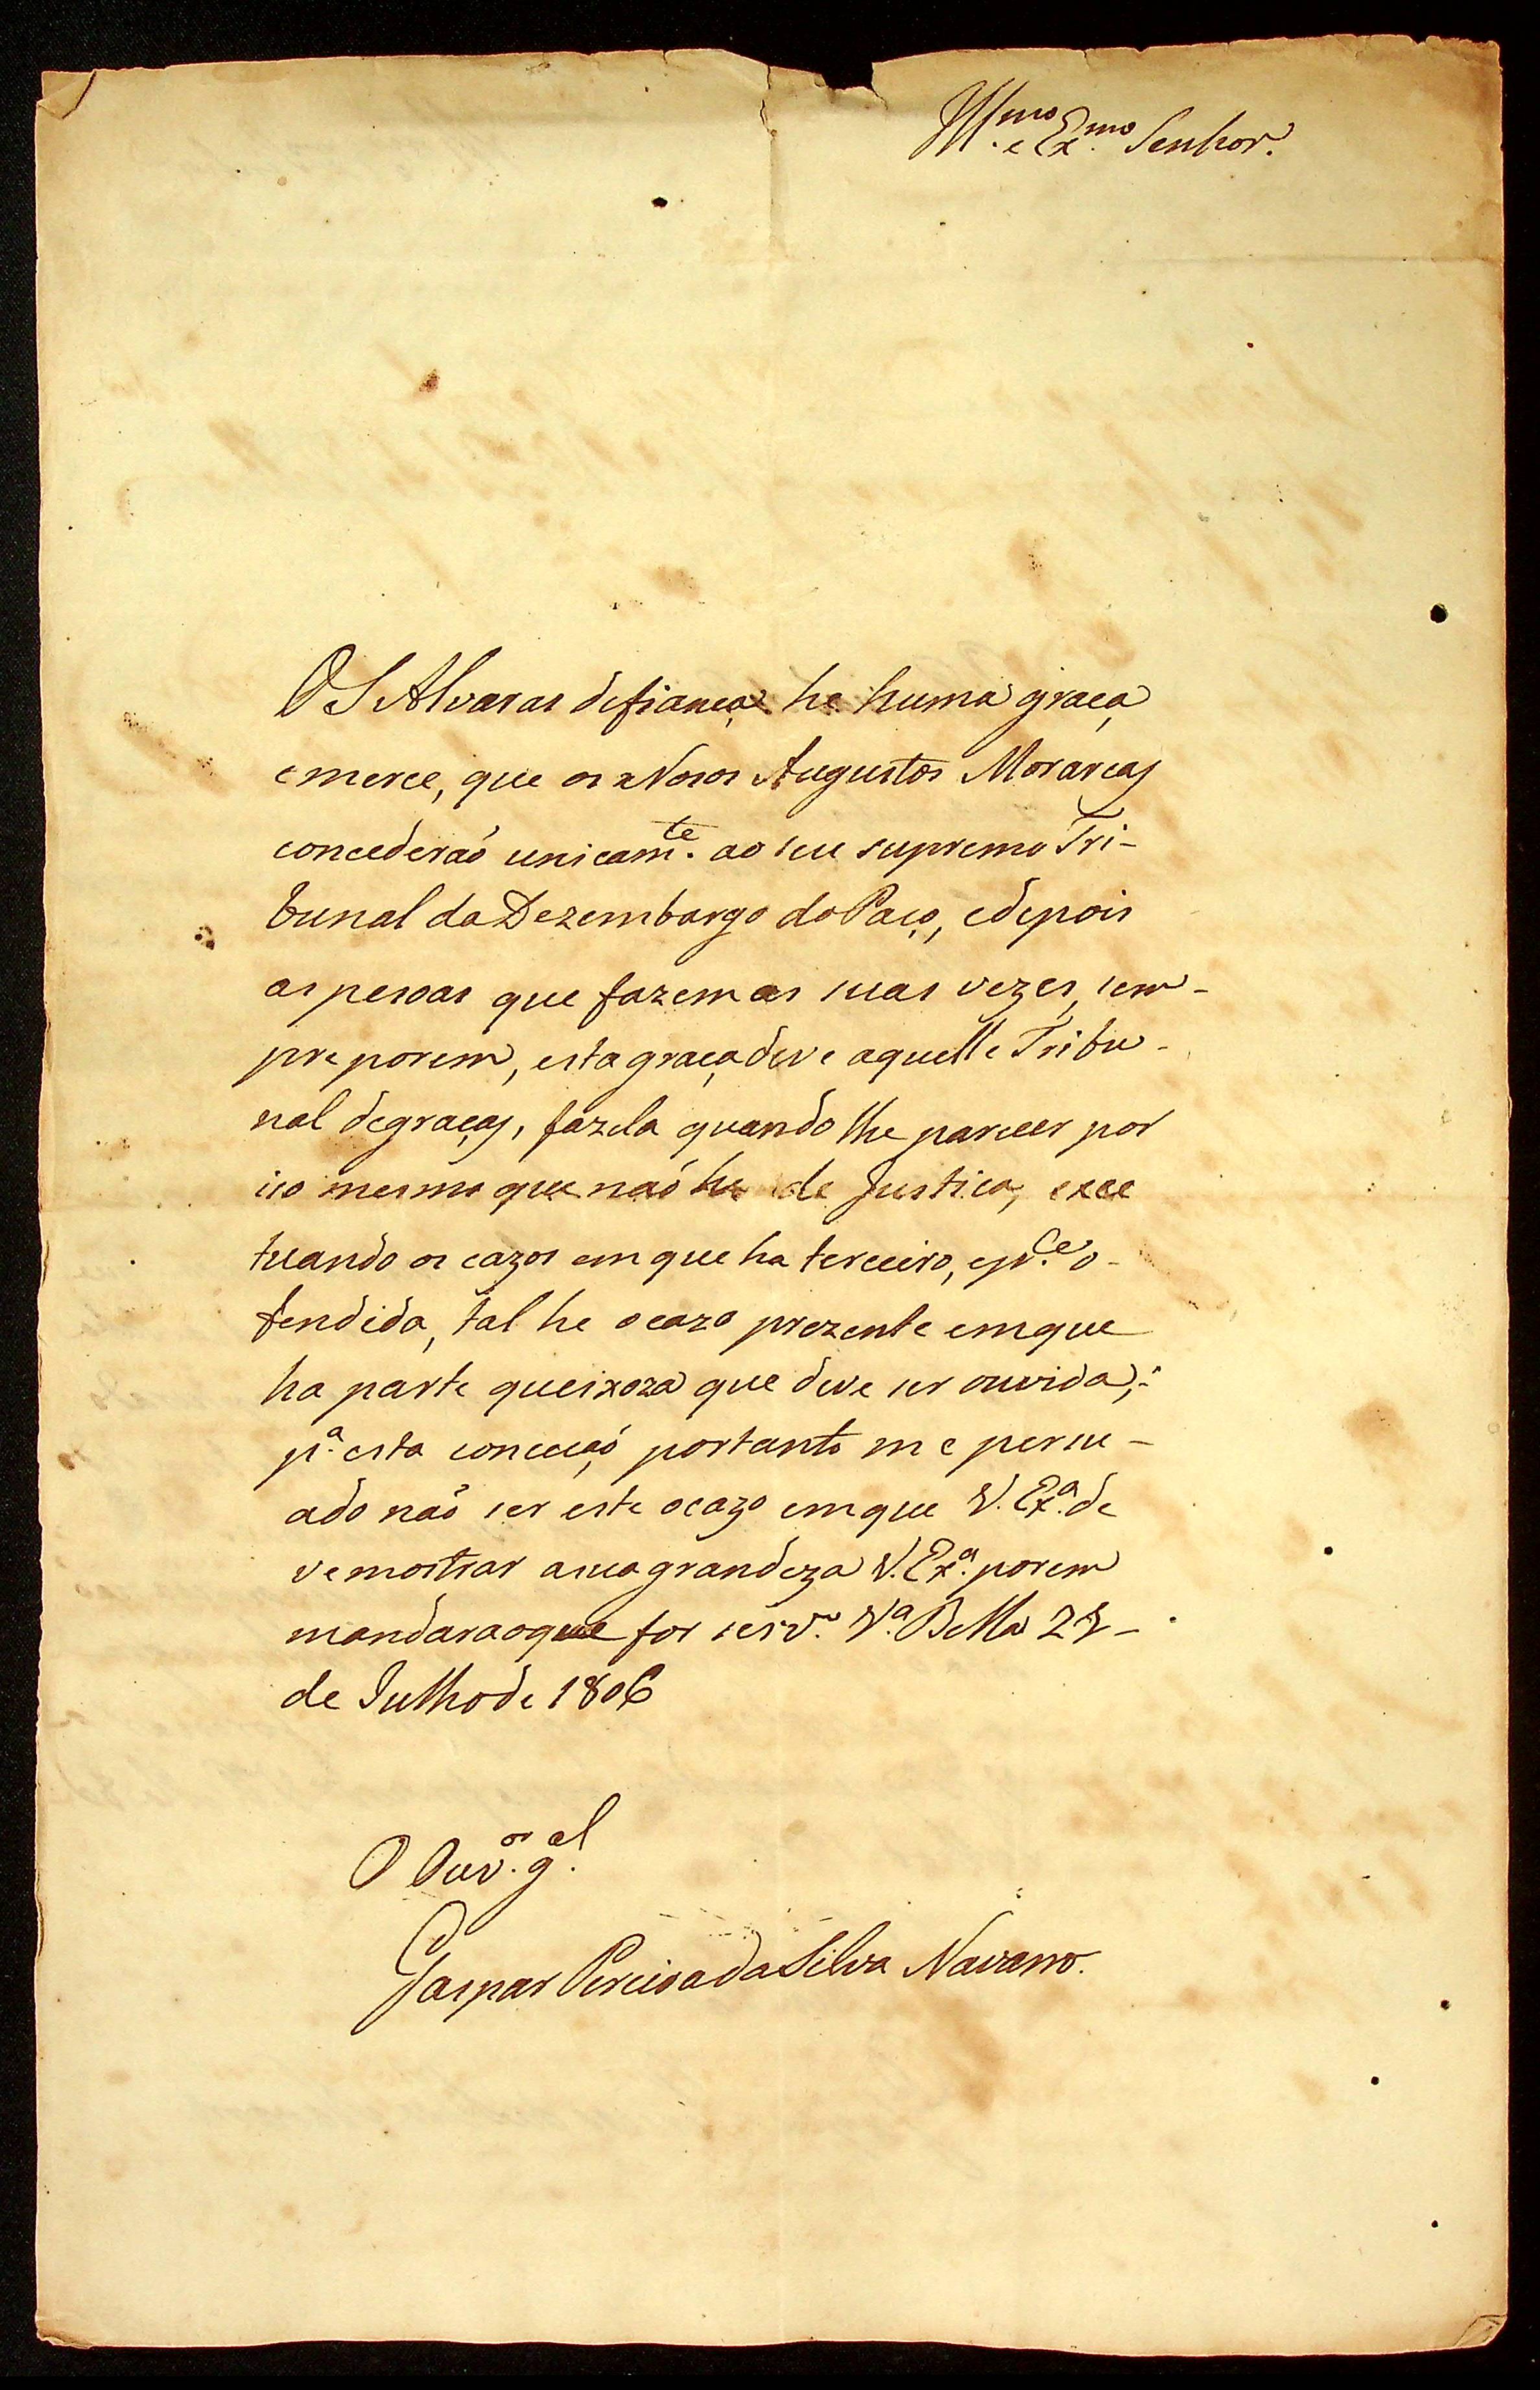 Ill.mo e Ex.mo Senhor.
OS Alvaras de fiança he huma graça
e merce, que os Nosos Augustos Monarcas
concederaõ unicam.te ao seu supremo Tri-
bunal do Dezembargo do Paço, e depois
as pesoas que fazem as suas vezes, sem-
pre porem, esta graça deve aquelle Tribu-
nal de graças, fazela quando lhe parecer por
iso mesmo que naõ he de Justiça, exce
tuando os cazos em que ha terceiro, e p.te o-
fendida, tal he o cazo prezente em que
ha parte queixoza que deve ser ouvida,
p.a esta conceçaõ portanto me persu-
ado naõ ser este o cazo em que V. Ex.a de
ve mostrar a sua grandeza V. Ex.a porem
mandara o que for serv.o V.a Bella 22
de Julho de 1806
O Ouv.or g.al
Gaspar Pereira da Silva Navarro.